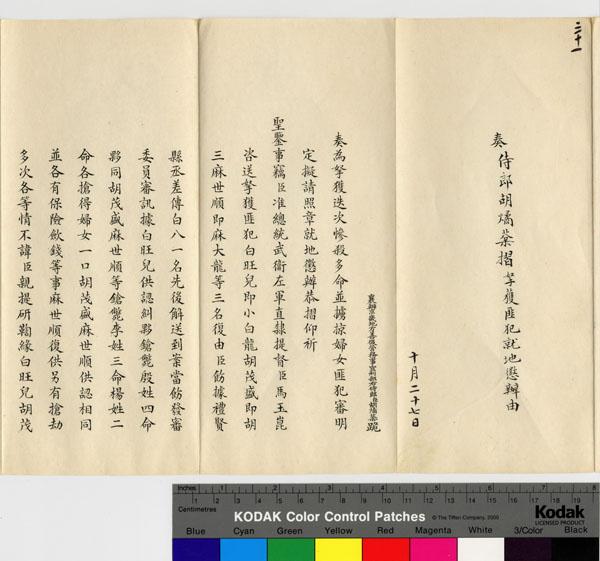 二十一
奏侍郎胡燏棻摺 拏獲匪犯就地懲辦由
十月二十七日
跪
奏為拏獲迭次慘殺多命並擄掠婦女匪犯審明
定擬請照章就地懲辦恭摺仰祈
聖鑒事竊臣准總統武衛左軍直隸提督臣馬玉崑
咨送拏獲匪犯白旺兒即小白龍胡茂盛即胡
三麻世順即麻大龍等三名復由臣飭據禮賢
縣丞差傳白八一名先後解送到案當飭發審
委員審訊據白旺兒供認糾夥鎗斃殷姓四命
夥同胡茂盛麻世順等鎗斃李姓三命楊姓二
命各搶得婦女一口胡茂盛麻世順供認相同
並各有保險飲錢等事麻世順復供另有搶劫
多次各等情不諱臣親提研鞫緣白旺兒胡茂
Inches 1 2 3 4 5 6 7 8
Centimetres 1 2 3 4 5 6 7 8 9 10 11 12 13 14 15 16 17 18 19
KODAK Color Control Patches © The Tiffen Company, 2000
Kodak
LICENSED PRODUCT
Blue Cyan Green Yellow Red Magenta White 3/Color Black